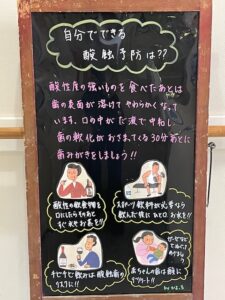 自分でできる
酸蝕予防は??
酸性度の強いものを食べたあとは
歯の表面が溶けてやわらかくなって
います。口の中がだ液で中和し
歯の軟化がおさまってくる30分あとに
歯みがきをしましょう!!
酸性の飲食物を
口にしたらそのあと
すぐ水やお茶を!!
スポーツ飲料が必要なら
飲んだ後に お口
お水を!!
チビチビ飲みは酸蝕歯の
リスクに!!
赤ちゃんの歯は酸に
デリケート!
by